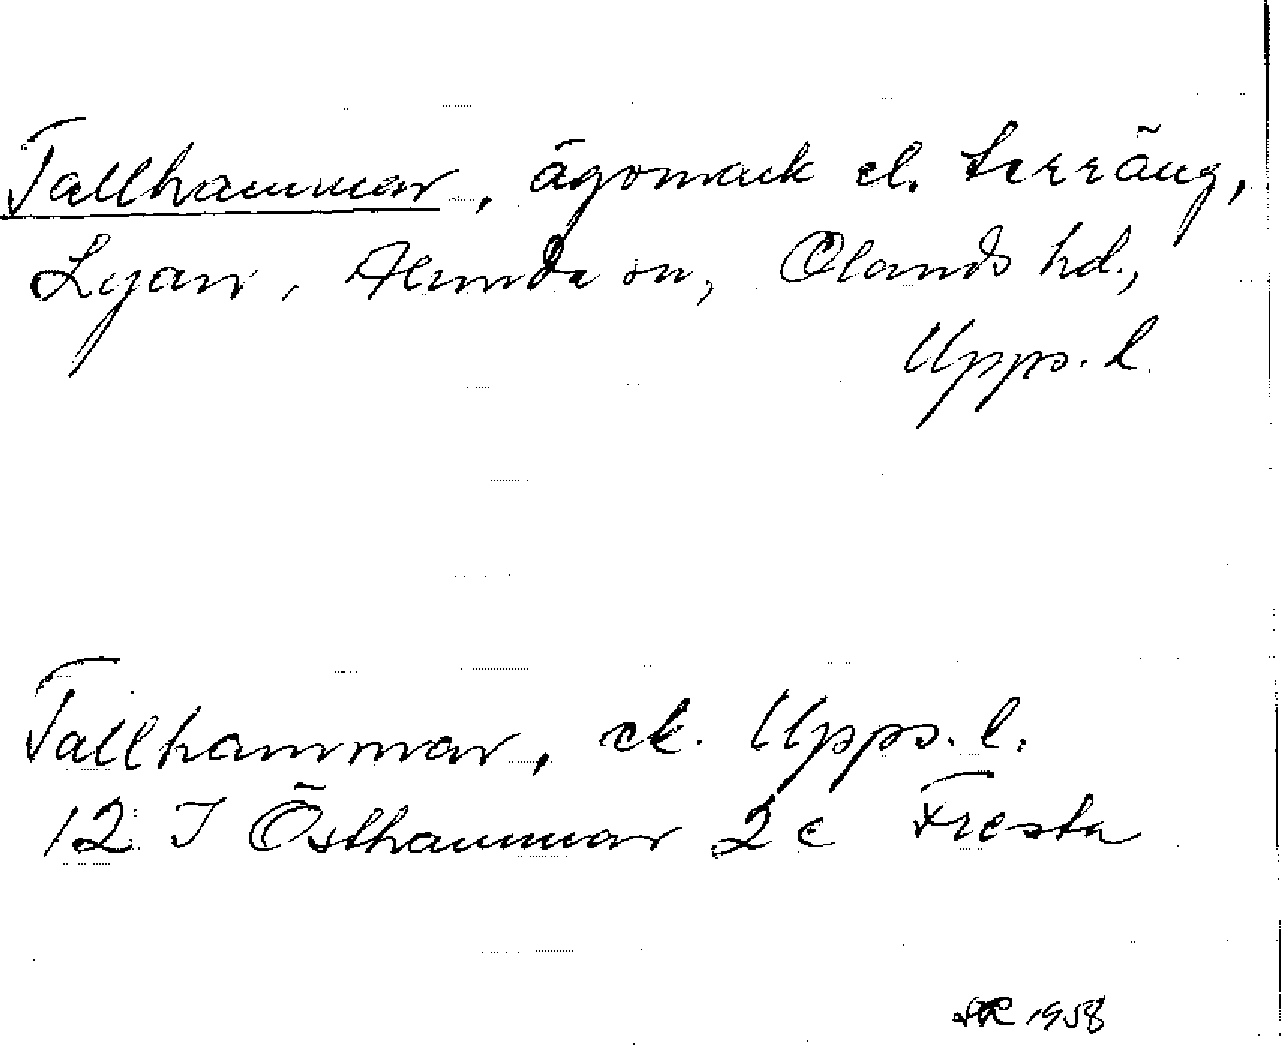 Tallhammar, ägomark el. terräng,
Lyan, Alunda sn, Olands hd.,
Upps. l.
Tallhammar, ek. Upps. l.
12 I Östhammar 2 c Fresta
1958